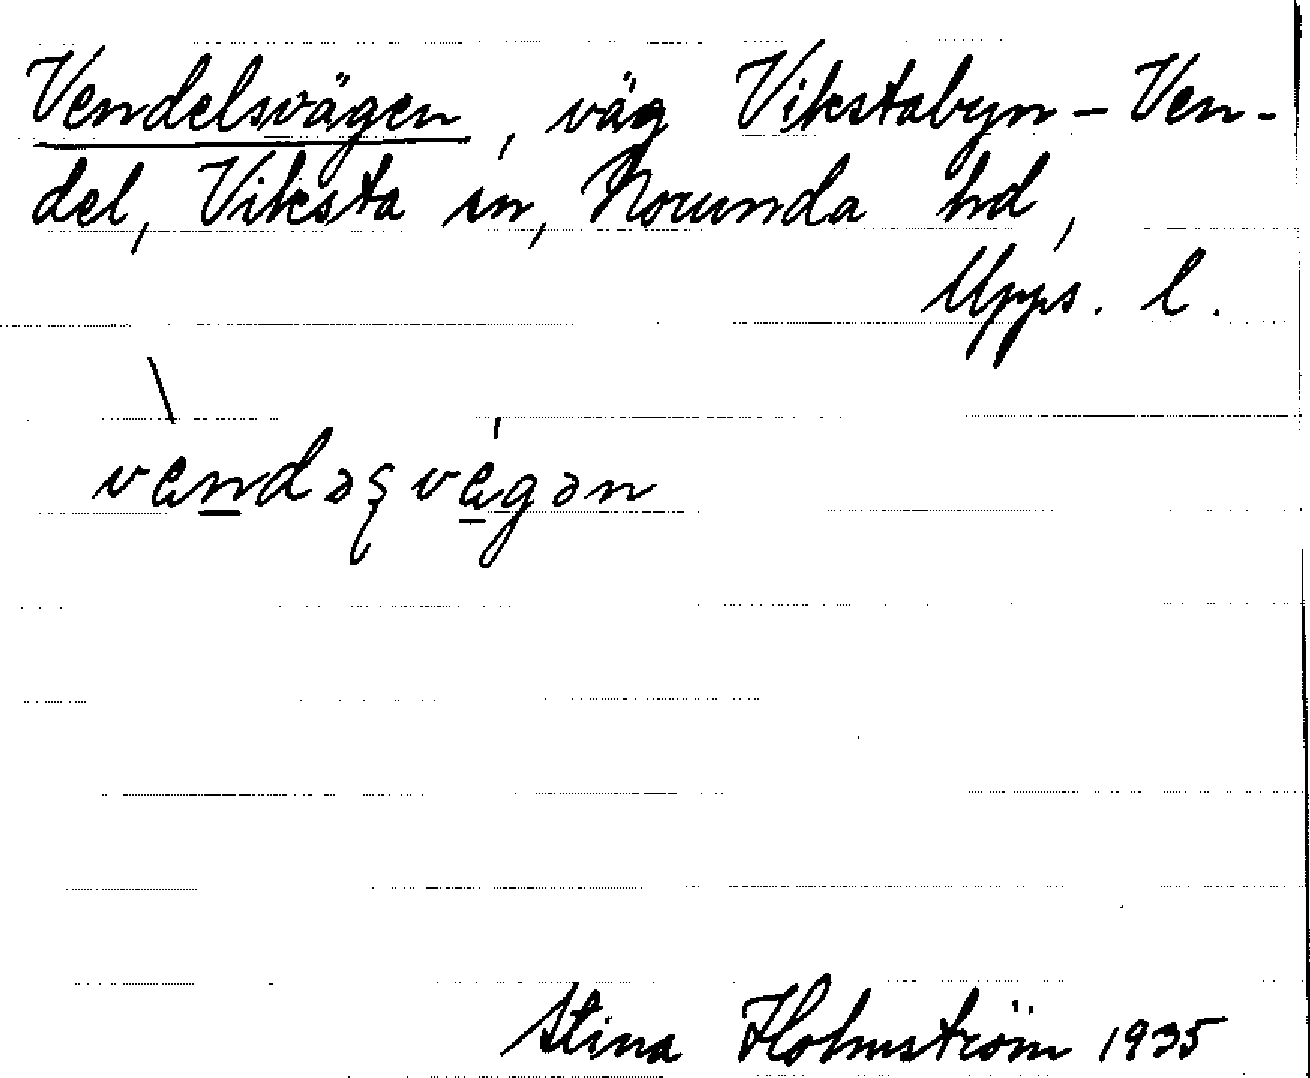 Vendelsvägen, väg Vikstabyn - Ven-
del, Viksta sn, Norunda hd,
Upps. l.
vendəʂvägən
Stina Holmström 1935